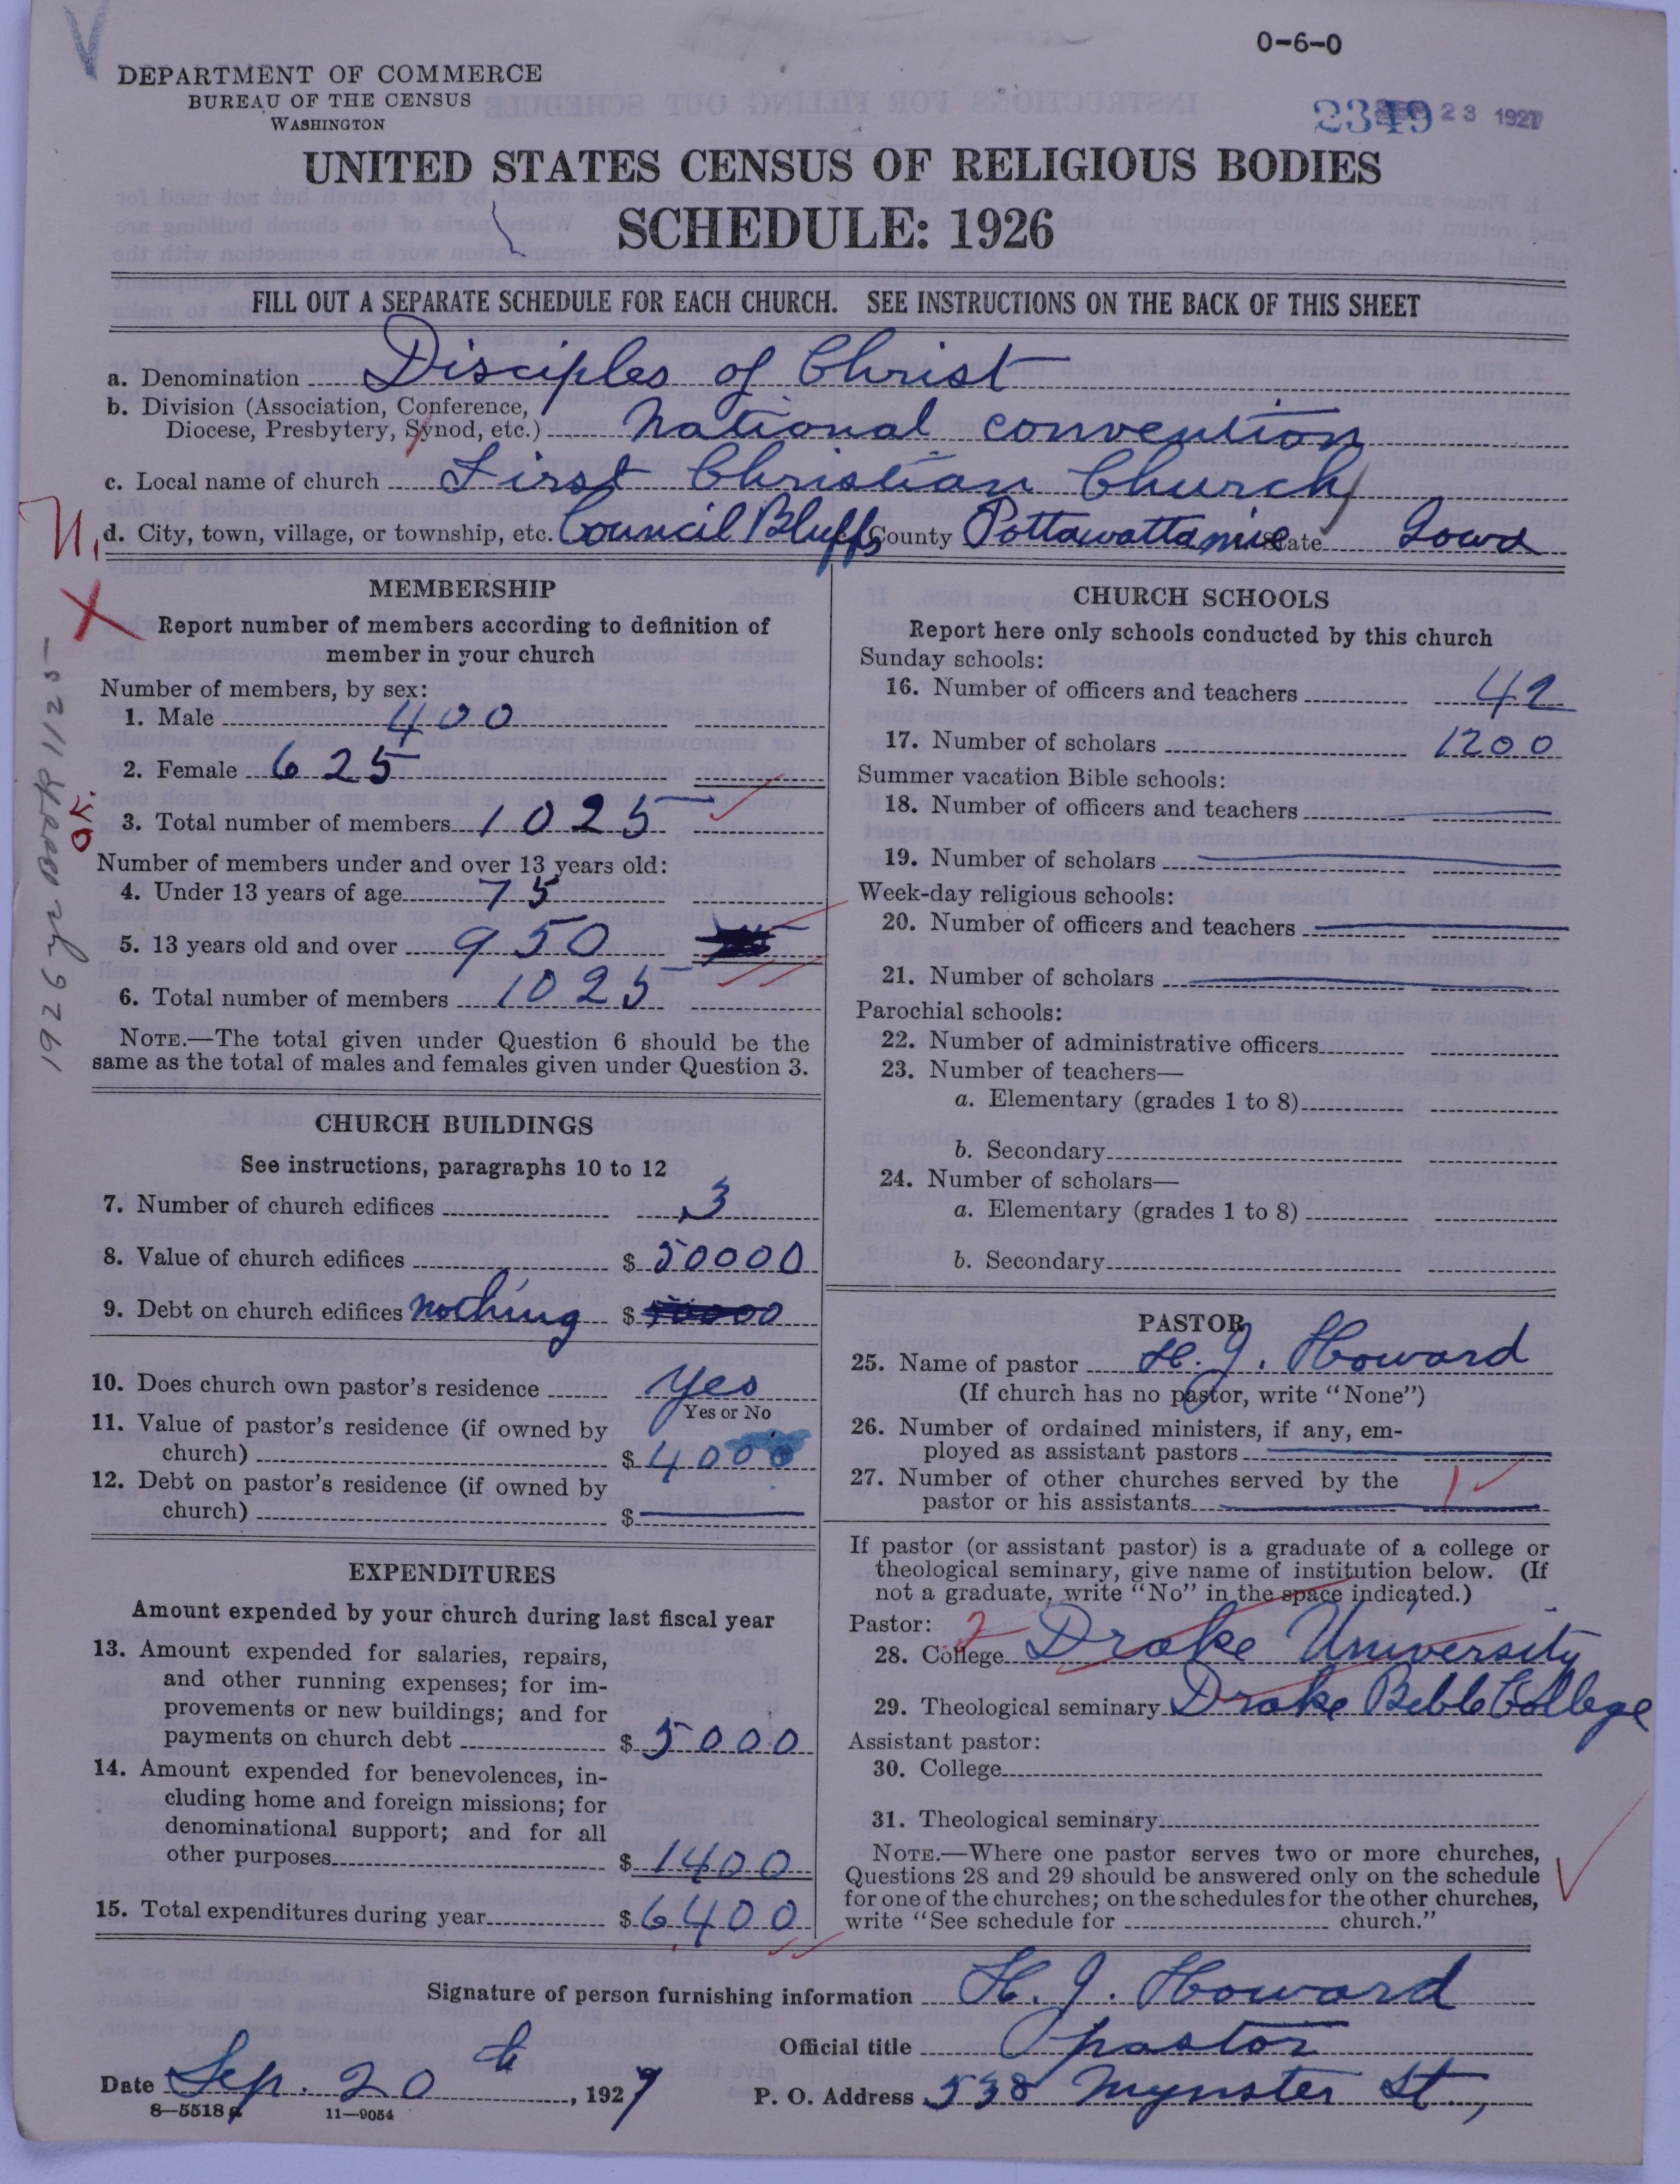 0-6-0
DEPARTMENT OF COMMERCE
BUREAU OF THE CENSUS
WASHINGTON
2349 23 1927
UNITED STATES CENSUS OF RELIGIOUS BODIES
SCHEDULE: 1926
FILL OUT A SEPARATE SCHEDULE FOR EACH CHURCH. SEE INSTRUCTIONS ON THE BACK OF THIS SHEET
a. Denomination Disciples of Christ
b. Division (Association, Conference,
Diocese, Presbytery, Synod, etc.) National convention
c. Local name of church First Christian Church
d. City, town, village, or township, etc. Council Bluffs County Pottawattamie State Iowa
MEMBERSHIP
Report number of members according to definition of
member in your church
Number of members, by sex:
1. Male 400
2. Female 625
3. Total number of members 1025
Number of members under and over 13 years old:
4. Under 13 years of age 75
5. 13 years old and over 950
6. Total number of members 1025
NOTE.—The total given under Question 6 should be the
same as the total of males and females given under Question 3.
1926 yr Book 1125
OK.
CHURCH BUILDINGS
See instructions, paragraphs 10 to 12
7. Number of church edifices 3
8. Value of church edifices $ 50000
9. Debt on church edifices nothing $
10. Does church own pastor's residence yes
Yes or No
11. Value of pastor's residence (if owned by
church) $ 4000
12. Debt on pastor's residence (if owned by
church) $
EXPENDITURES
Amount expended by your church during last fiscal year
13. Amount expended for salaries, repairs,
and other running expenses; for im-
provements or new buildings; and for
payments on church debt $ 5000
14. Amount expended for benevolences, in-
cluding home and foreign missions; for
denominational support; and for all
other purposes $ 1400
15. Total expenditures during year $ 6400
CHURCH SCHOOLS
Report here only schools conducted by this church
Sunday schools:
16. Number of officers and teachers 42
17. Number of scholars 1200
Summer vacation Bible schools:
18. Number of officers and teachers
19. Number of scholars
Week-day religious schools:
20. Number of officers and teachers
21. Number of scholars
Parochial schools:
22. Number of administrative officers
23. Number of teachers—
a. Elementary (grades 1 to 8)
b. Secondary
24. Number of scholars—
a. Elementary (grades 1 to 8)
b. Secondary
PASTOR
25. Name of pastor H. J. Howard
(If church has no pastor, write "None")
26. Number of ordained ministers, if any, em-
ployed as assistant pastors
27. Number of other churches served by the
pastor or his assistants 1
If pastor (or assistant pastor) is a graduate of a college or
theological seminary, give name of institution below. (If
not a graduate, write "No" in the space indicated.)
Pastor: 2
28. College Drake University
29. Theological seminary Drake Bible College
Assistant pastor:
30. College
31. Theological seminary
NOTE.—Where one pastor serves two or more churches,
Questions 28 and 29 should be answered only on the schedule
for one of the churches; on the schedules for the other churches,
write "See schedule for church."
Signature of person furnishing information H. J. Howard
Official title pastor
Date Sep. 20th, 1927 P. O. Address 538 Mynster St.,
8—5518a 11—9054